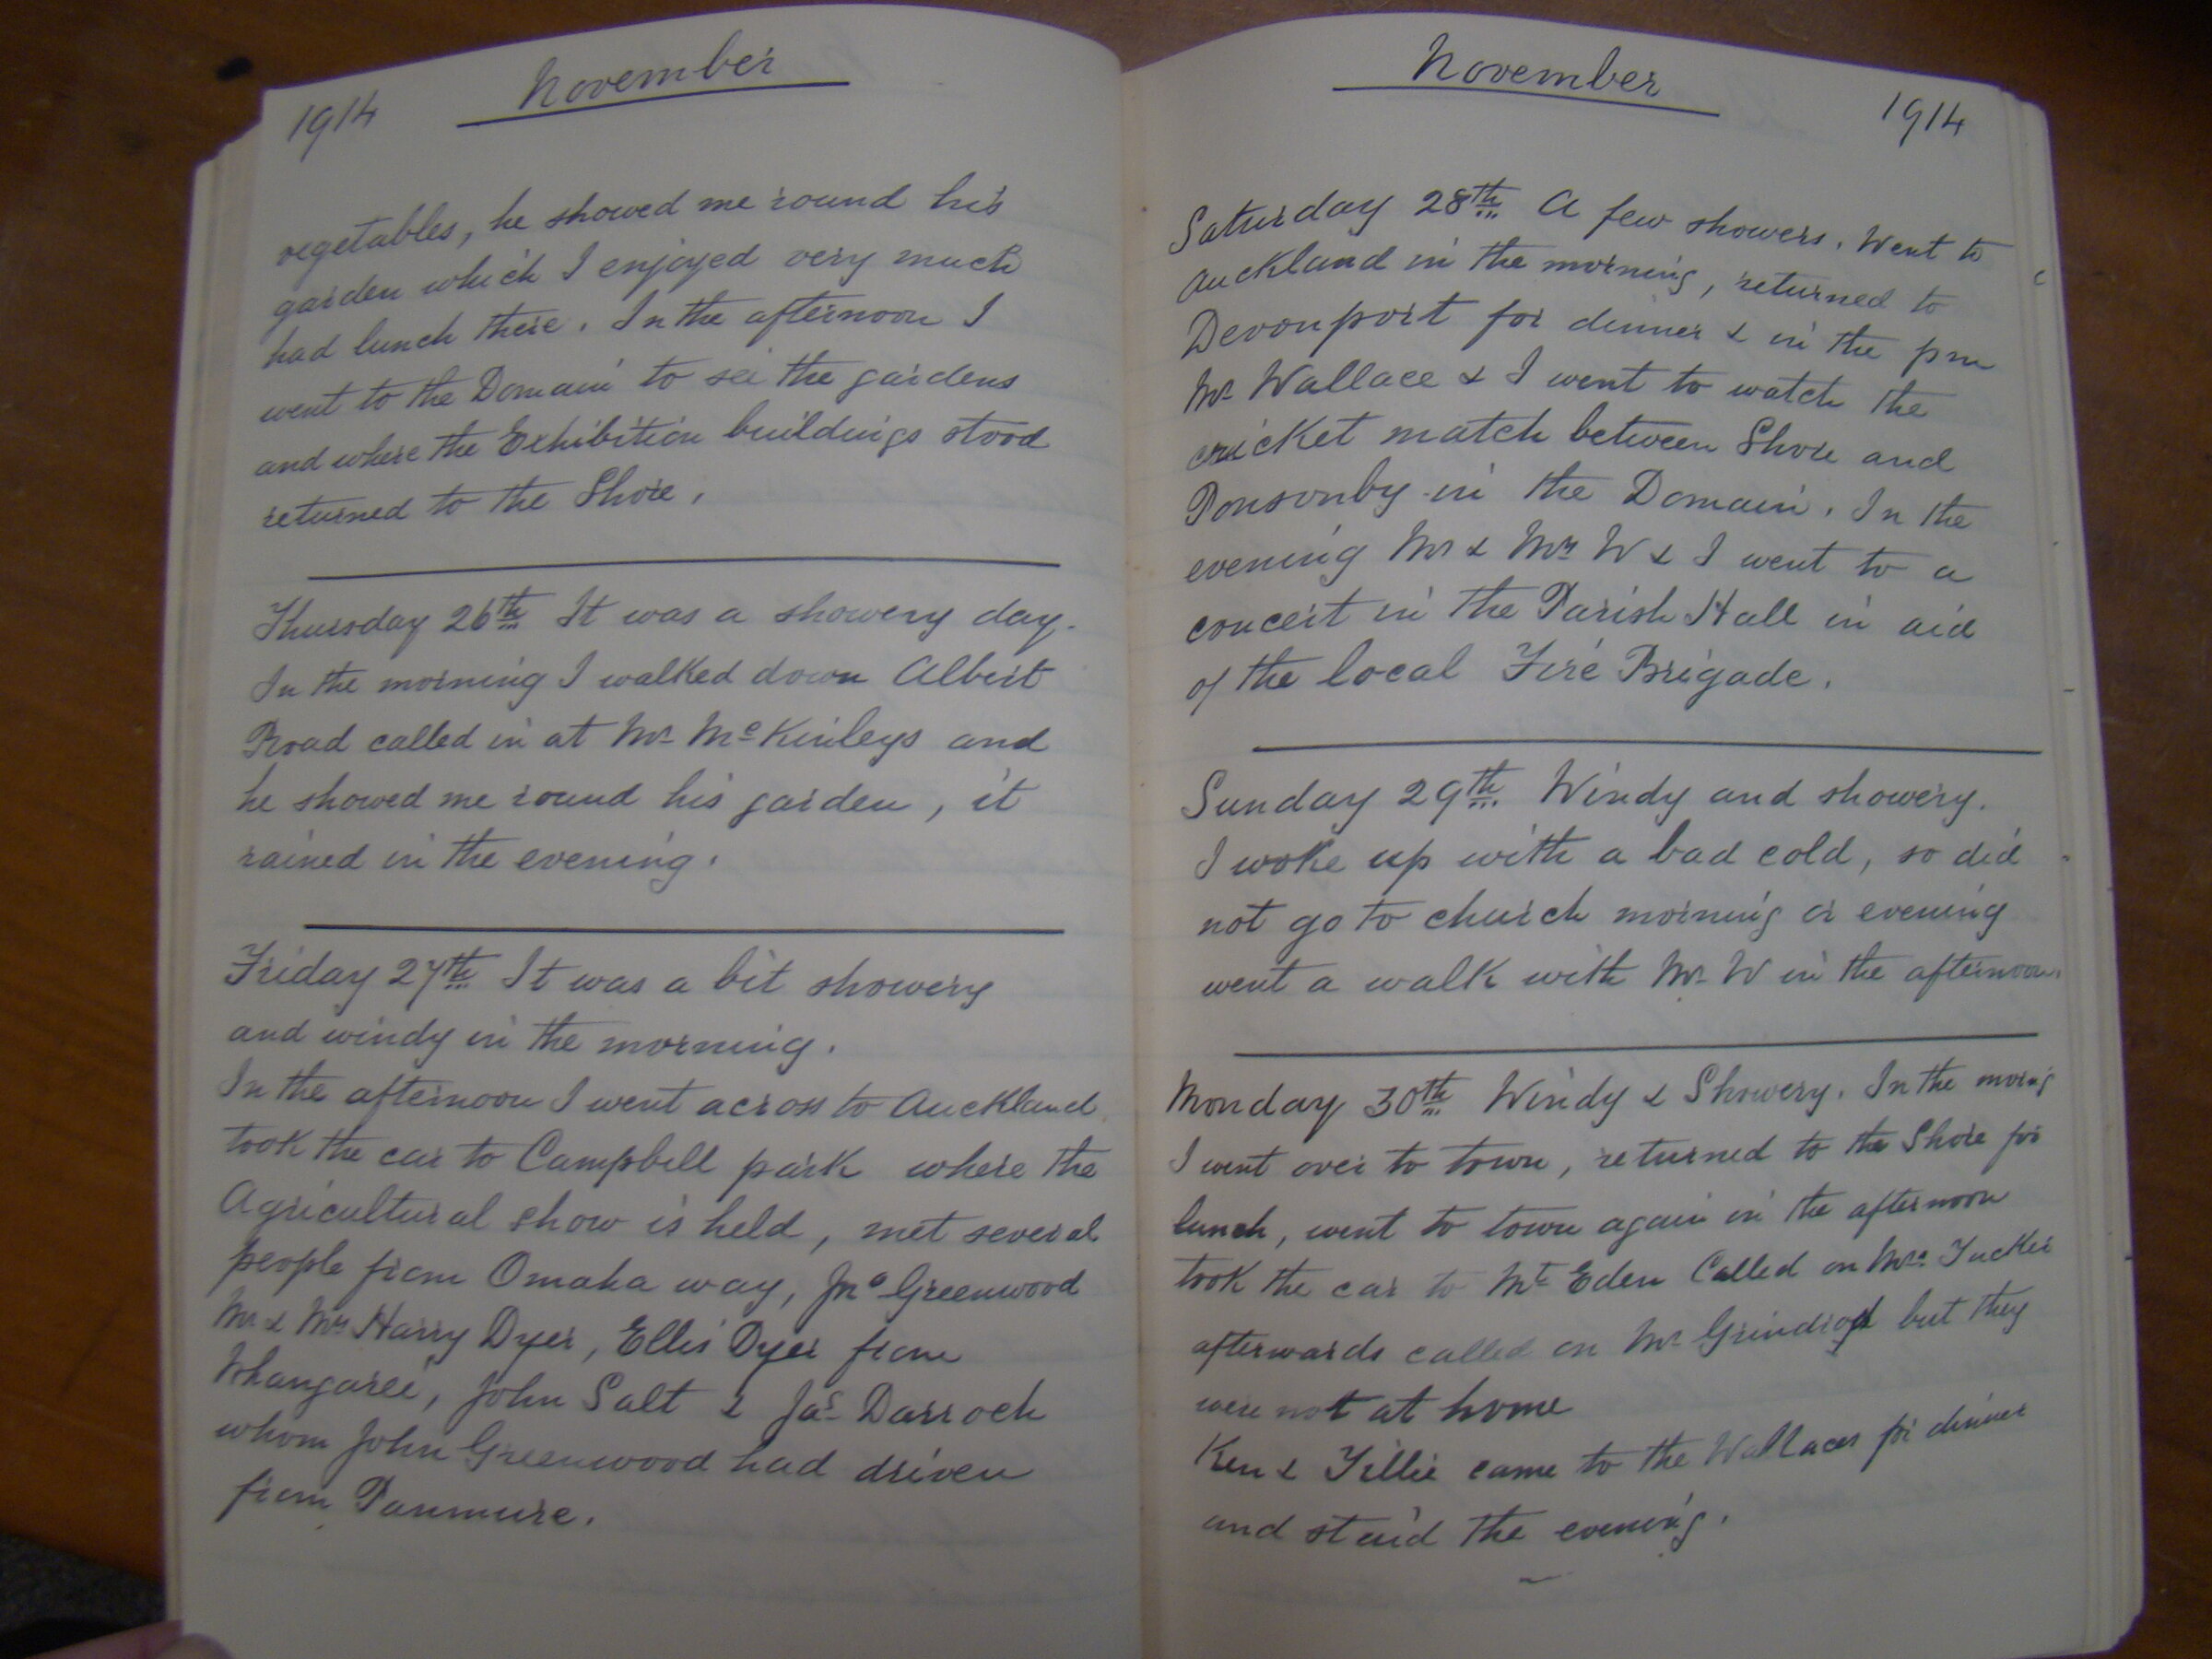 1914 November
vegetables, he showed me round his
garden which I enjoyed very much
had lunch there. In the afternoon I
went to the Domain to see the gardens
and where the Exhibition buildings stood
returned to the Shore.
Thursday 26th It was a showery day.
In the morning I walked down Albert
Road called in at Mr McKinleys and
he showed me round his garden, it
rained in the evening.
Friday 27th It was a bit showery
and windy in the morning.
In the afternoon I went across to Auckland
took the car to Campbell park where the
Agricultural show is held, met several
people from Omaha way, Jno Greenwood
Mr & Mrs Harry Dyer, Ellis Dyer from
Whangarei, John Salt & Jas Darroch
whom John Greenwood had driven
from Panmure.
November 1914
Saturday 28th A few showers. Went to
Auckland in the morning, returned to
Devonport for dinner & in the pm
Mr Wallace & I went to watch the
cricket match between Shore and
Ponsonby in the Domain. In the
evening Mr & Mrs W & I went to a
concert in the Parish Hall in aid
of the local Fire Brigade.
Sunday 29th Windy and showery.
I woke up with a bad cold, so did
not go to church morning or evening
went a walk with Mr W in the afternoon.
Monday 30th Windy & Showery. In the morng
I went over to town, returned to the Shore for
lunch, went to town again in the afternoon
took the car to Mt Eden Called on Mrs Tucker
afterwards called on Mr Grindrod but they
were not at home
Ken & Tillie came to the Wallaces for dinner
and staid the evening.